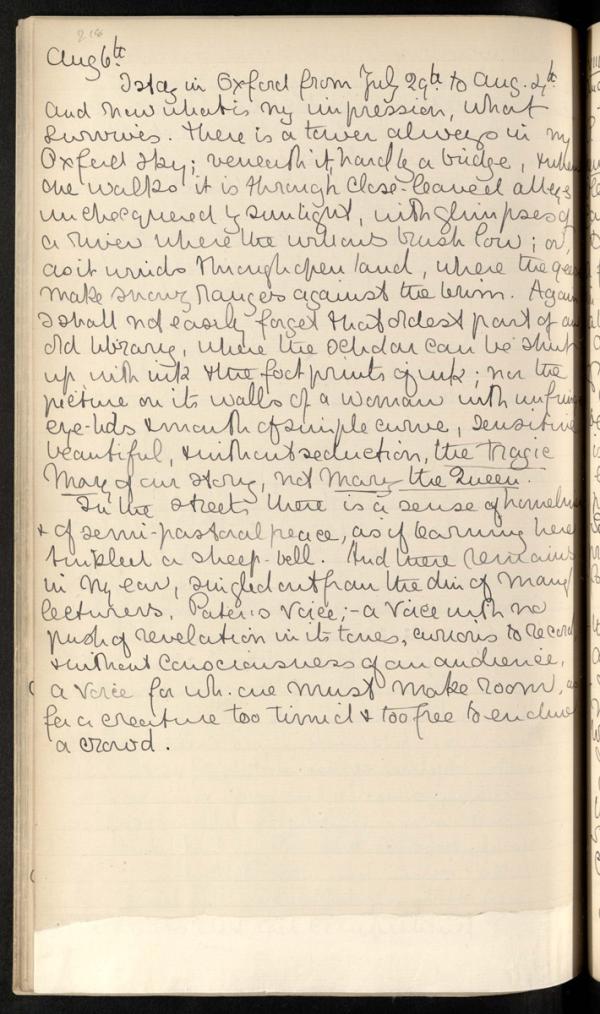 216
Aug 6th
I stay in Oxford from July 29th to Aug. 4th
and now what is my impression, what
survives. There is a tower always in my
Oxford sky; beneath it, hardly a bridge, & when
one walks it is through close-leaved alleys
unchequered by sunlight, with glimpses of
a river where the willows brush low; or,
as it winds through open land, where the geese
make snowy ranges against the brim. Again
I shall not easily forget that oldest part of an
old library, where the scholar can be shut
up with ink & the footprints of ink; nor the
picture on its walls of a woman with
eye-lids & mouth of simple curve, sensitive
beautiful, & without seduction, the tragic
Mary of our story, not Mary the Queen.
In the streets there is a sense of
& of semi-pastoral peace, as if learning here
tinkled a sheep-bell. And there remains
in my ear, singled out from the din of many
lecturers, Pater's voice; - a voice with no
push of revelation in its tones, curious to record
& without consciousness of an audience,
a voice for wh. one must make room, as
for a creature too timid & too free to endure
a crowd.